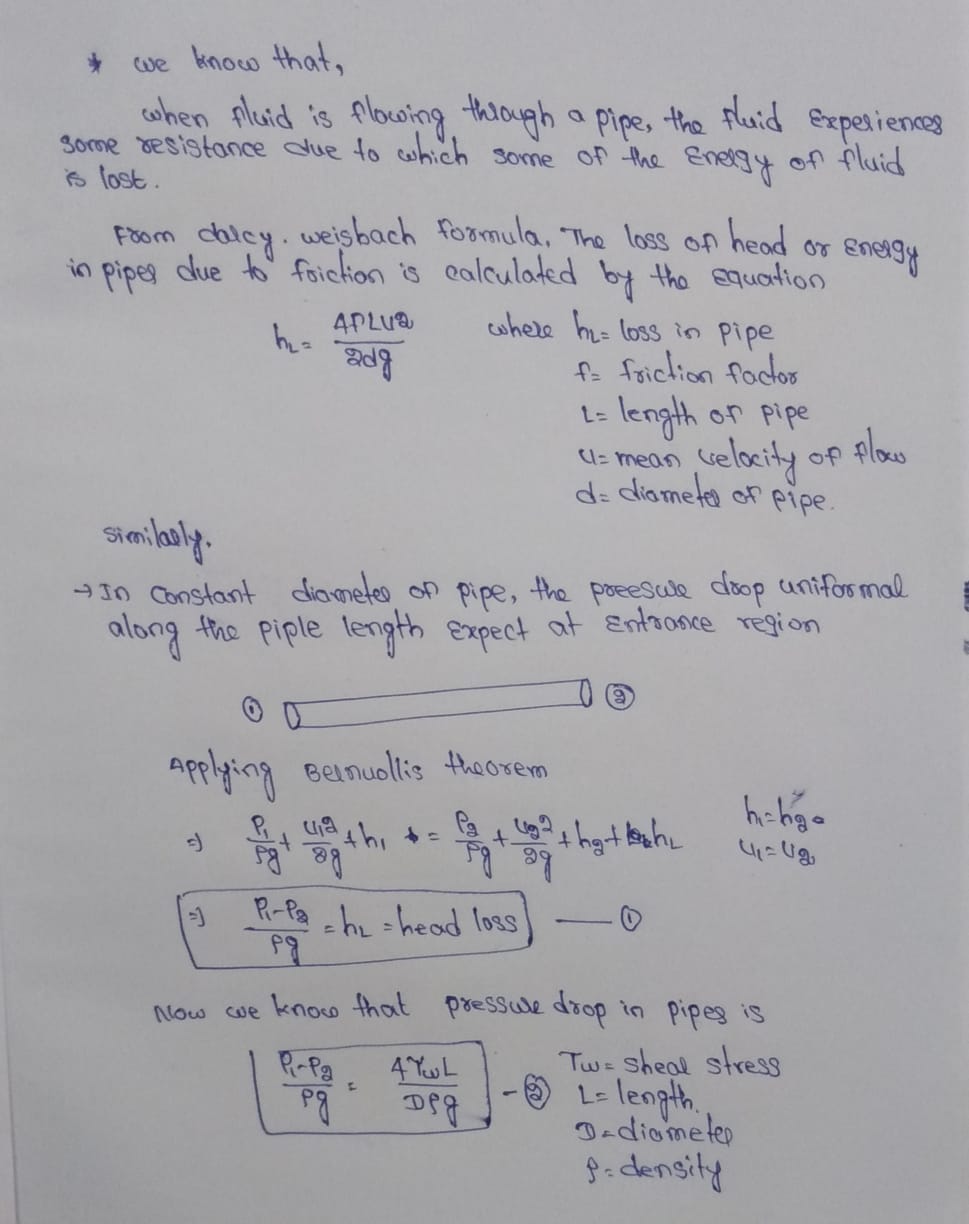 * we know that,
when fluid is flowing through a pipe, the fluid Experiences
some resistance due to which some of the Energy of fluid
is lost.
From darcy. weisbach formula, The loss of head or Energy
in pipes due to friction is calculated by the equation
hL = 4fLu2 / 2dg where hL = loss in pipe
f = friction factor
L = length of pipe
u = mean velocity of flow
d = diameter of pipe.
similarly.
→ In constant diameter of pipe, the preesure drop uniformal
along the piple length Expect at Entrance region
① ②
Applying Bernuollis theorem
⇒ P1/ρg + u1²/2g + h1 = P2/ρg + u2²/2g + h2 + hL h1 = h2
u1 = u2
⇒ P1-P2/ρg = hL = head loss — ①
Now we know that pressure drop in pipes is
P1-P2/ρg = 4τwL/Dρg - ② Tw = shear stress
L = length.
D = diameter
ρ = density